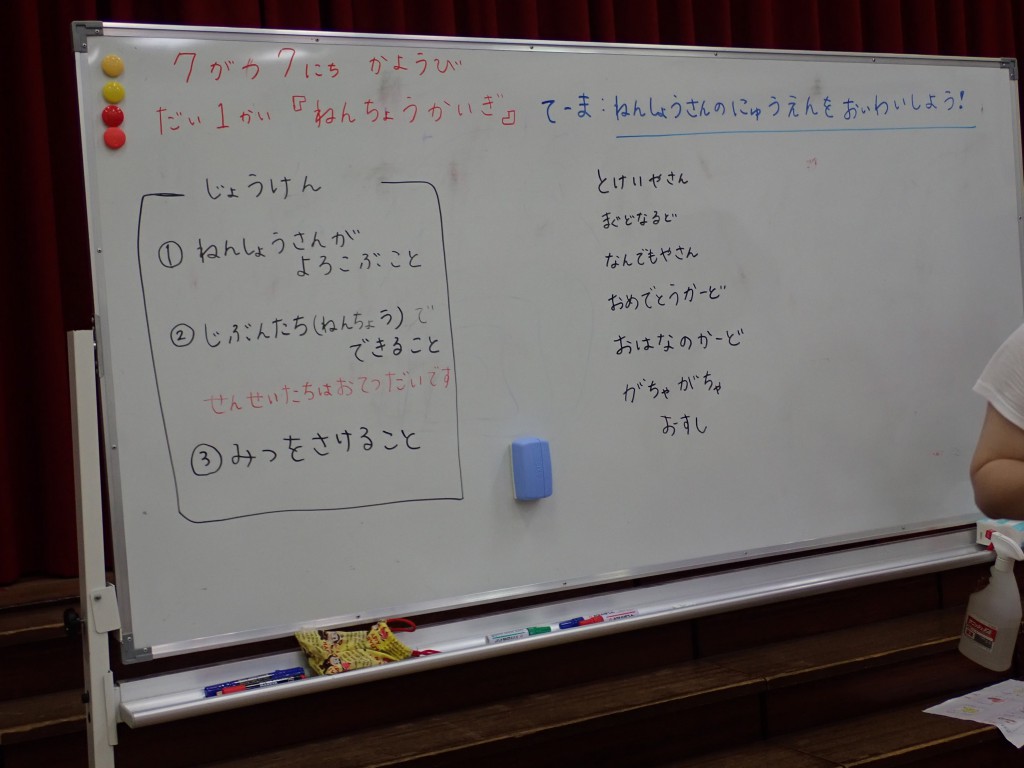 7がつ7にち かようび
だい1かい『ねんちょうかいぎ』
てーま:ねんしょうさんのにゅうえんをおいわいしよう!
じょうけん
① ねんしょうさんが
よろこぶこと
② じぶんたち(ねんちょう)で
できること
せんせいたちはおてつだいです
③ みつをさけること
とけいやさん
まくどなるど
なんでもやさん
おめでとうかーど
おはなのかーど
がちゃがちゃ
おすし